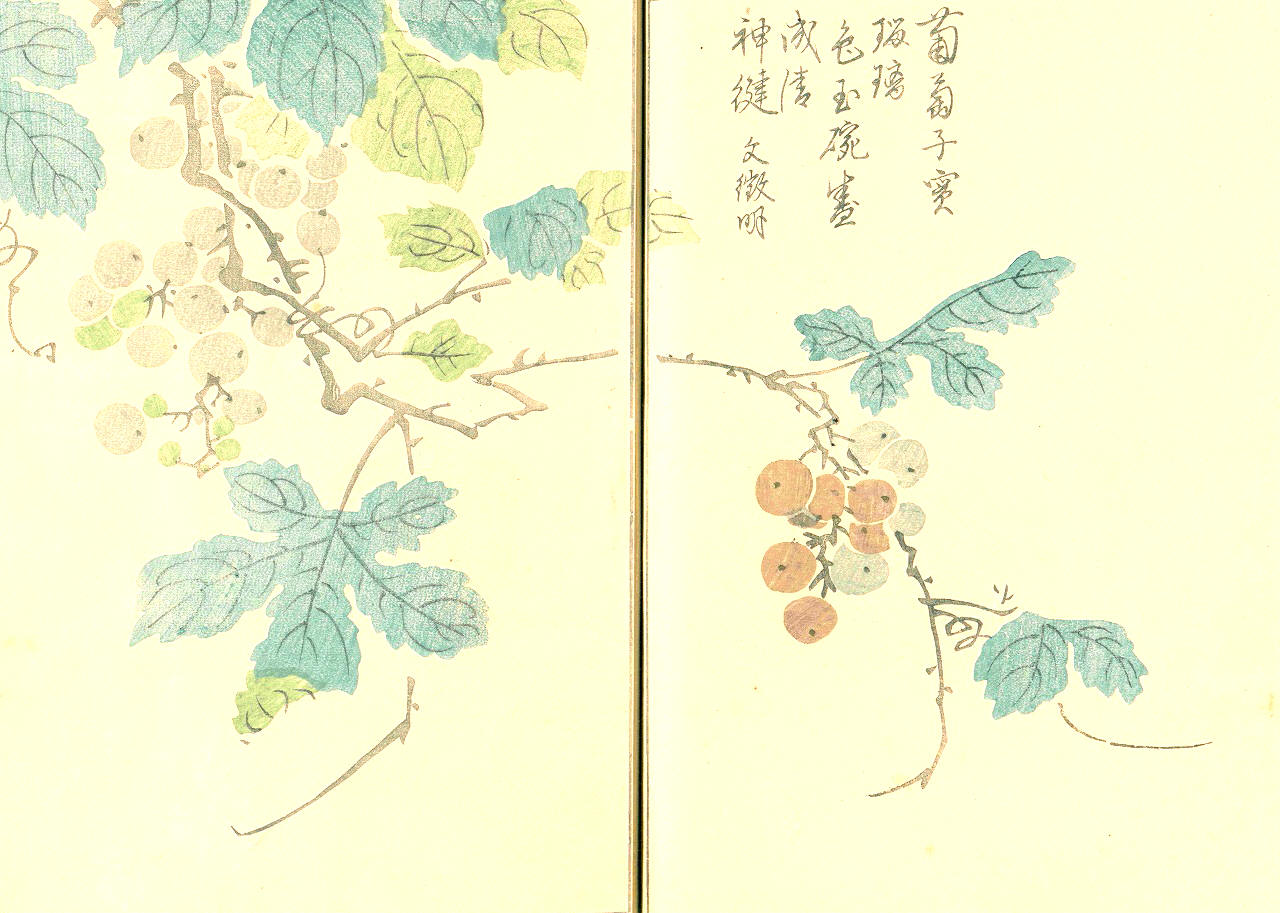 葡萄子實
瑠璃
色玉碗盛
成清
神縫 文徵明